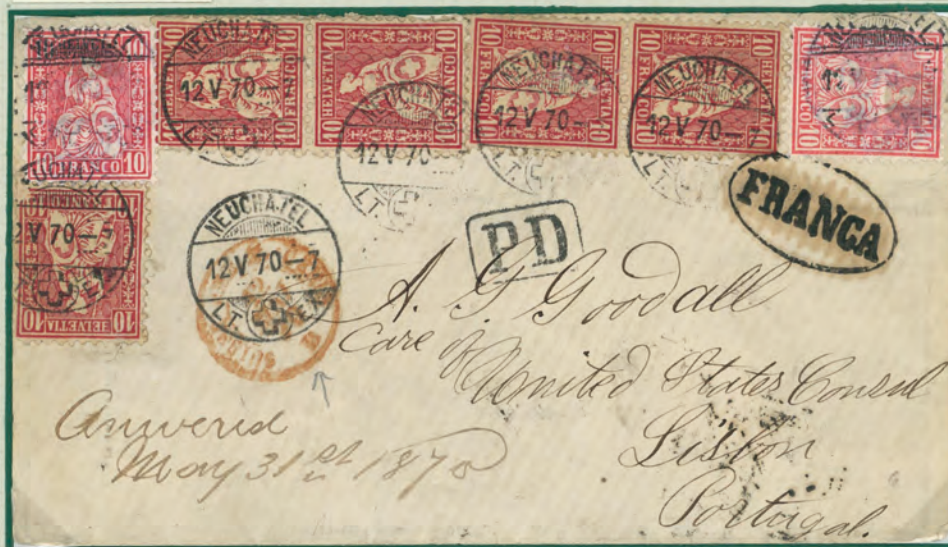 10 10 FRANCO 10
NEUCHATEL 12 V 70 LT.
10 HELVETIA FRANCO 10
NEUCHATEL 12 V 70 LT.
10 HELVETIA FRANCO 10
NEUCHATEL 12 V 70 LT.
10 HELVETIA 10
NEUCHATEL 12 V 70 LT.
10 HELVETIA 10
12 V 70
10 HELVETIA 10
NEUCHATEL
12 V 70—7
LT.
PD
FRANCA
A. F. Goodall
Care of
United States Consul
Lisbon
Portugal.
Answered
May 31st 1870